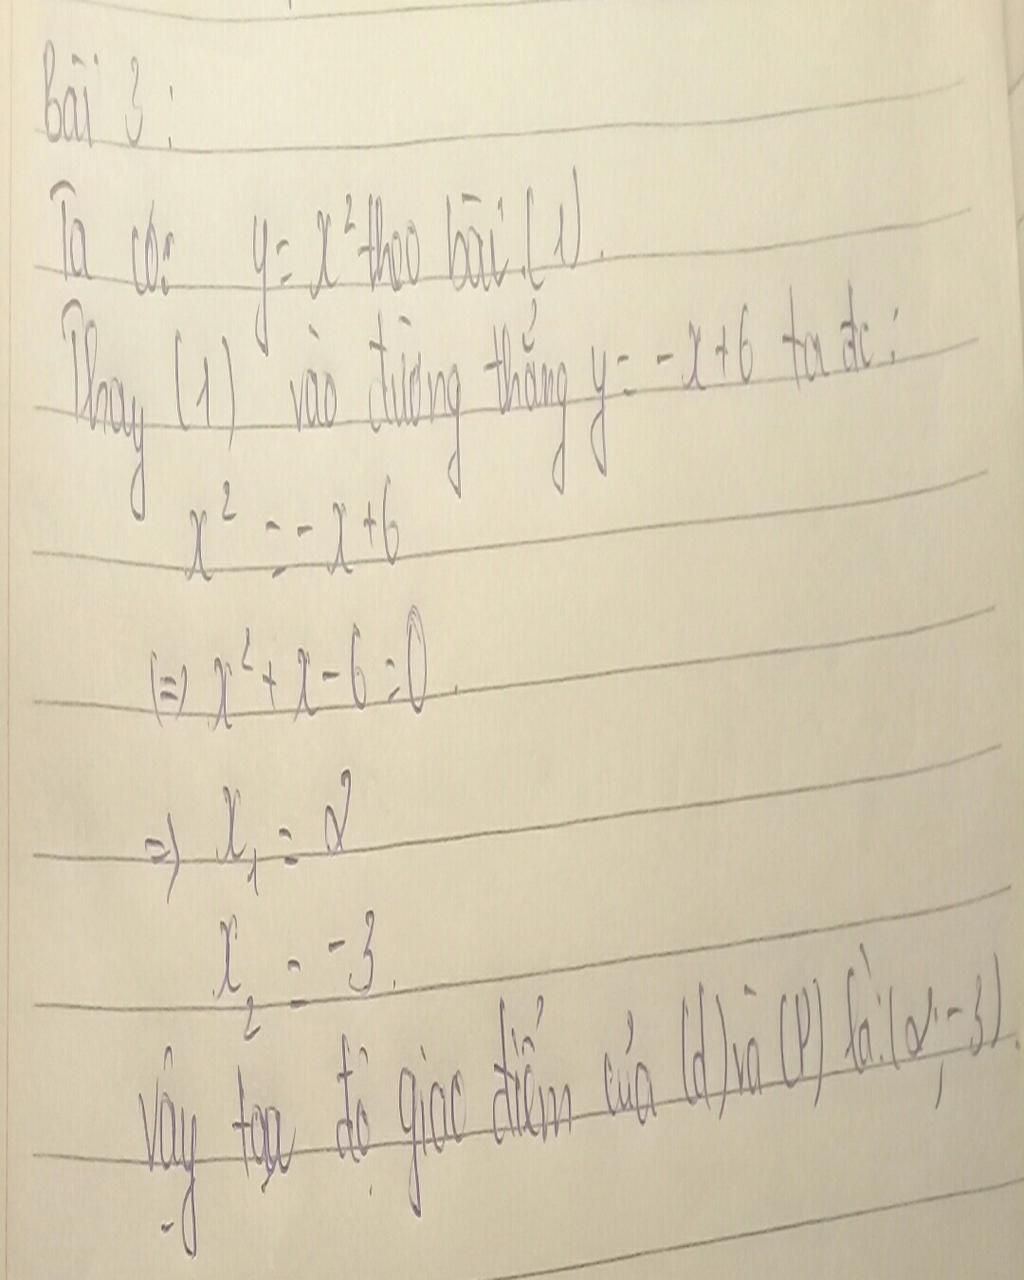 Bài 3:
Ta có: y = x² theo bài (1).
Thay (1) vào đường thẳng y = -x+6 ta đc:
x² = -x+6
(=) x² + x - 6 = 0.
=) x₁ = 2
x₂ = -3.
Vậy toạ độ giao điểm của (d) và (P) là: (2; -3).